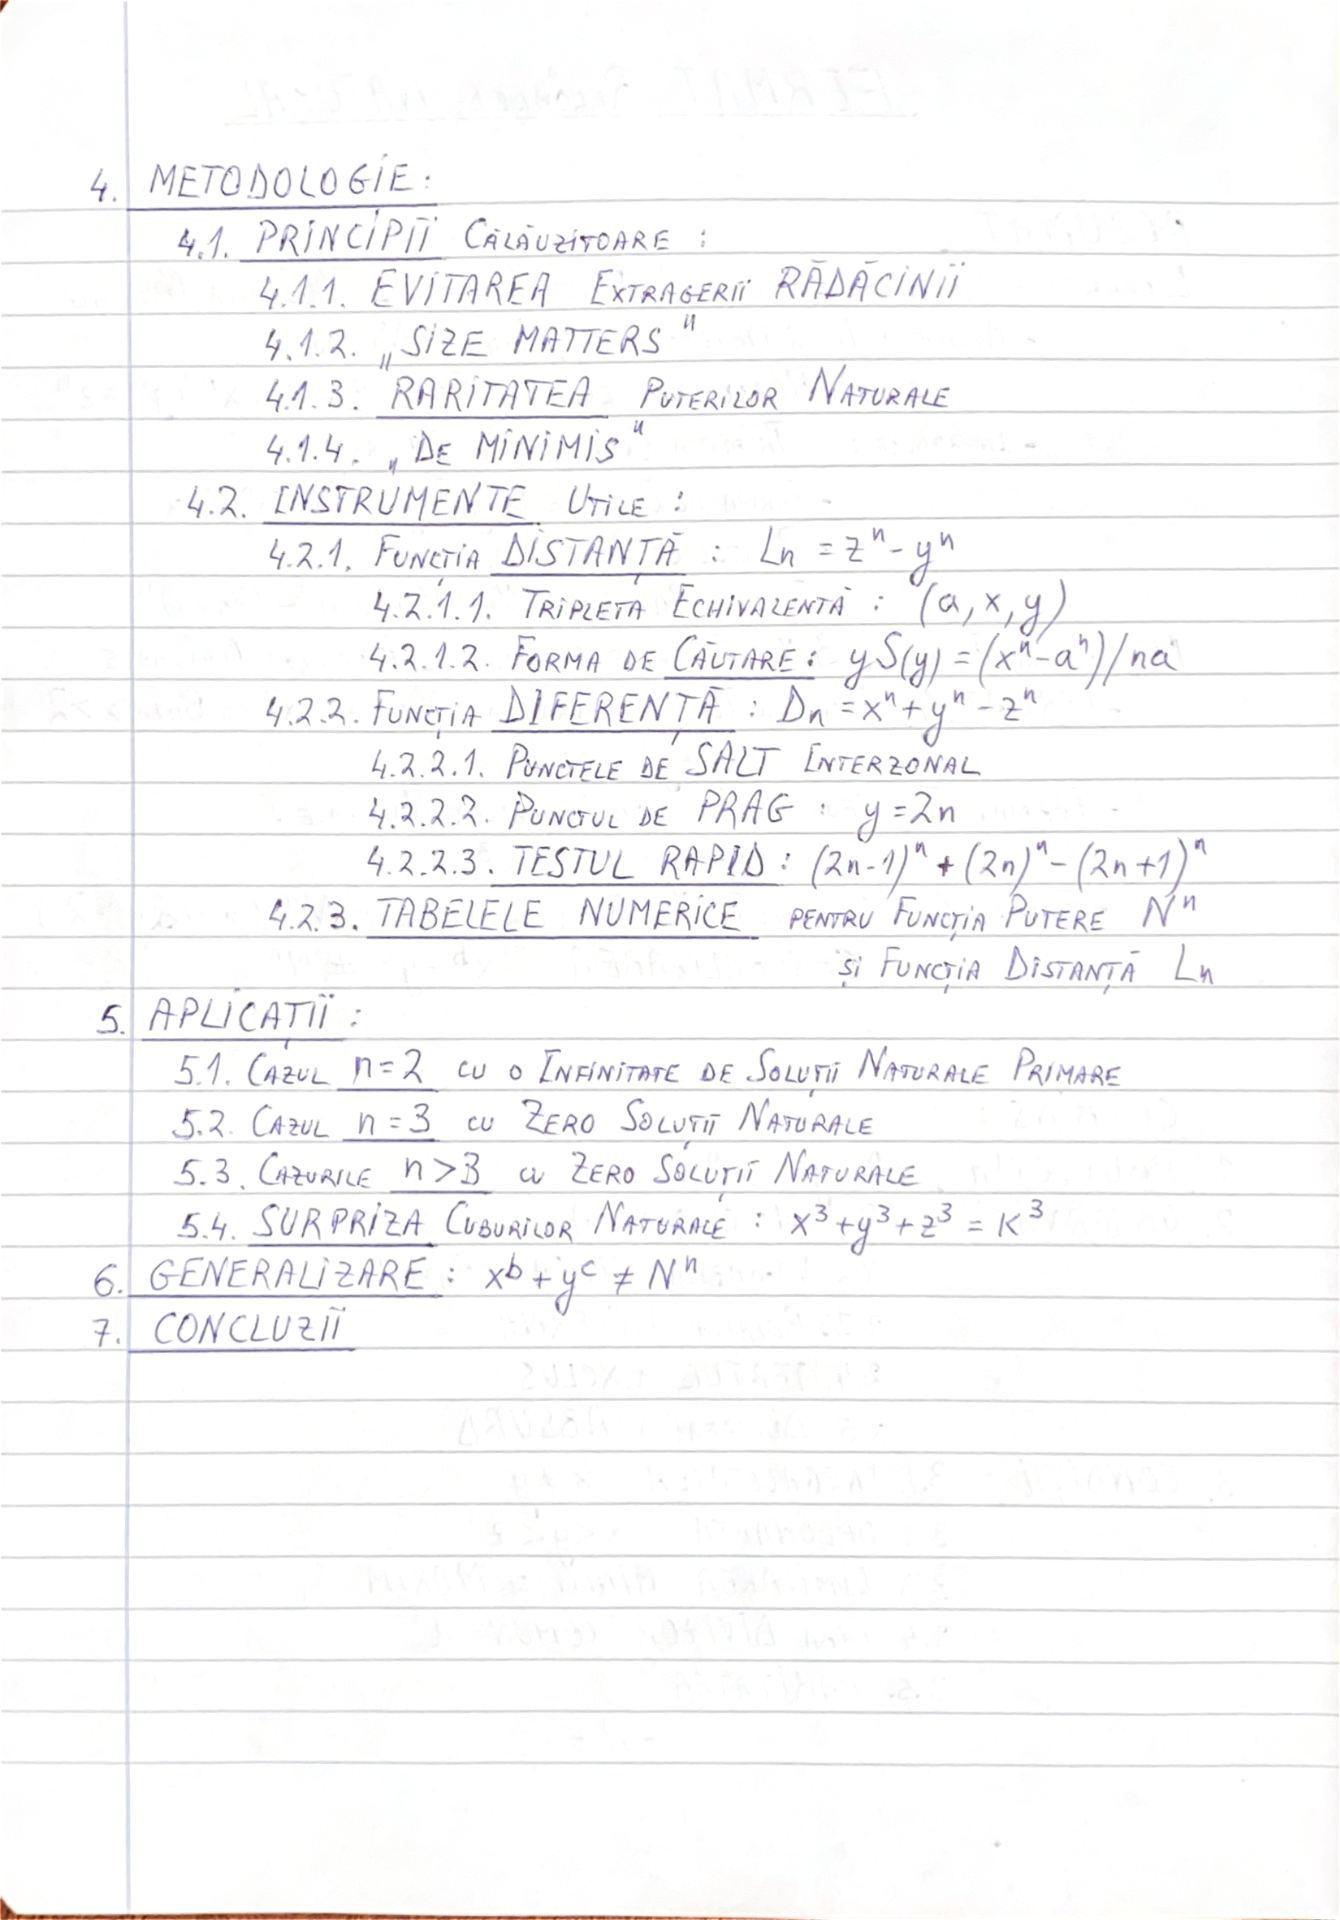 4. METODOLOGIE:
4.1. PRINCIPII CĂLĂUZITOARE :
4.1.1. EVITAREA EXTRAGERII RĂDĂCINII
4.1.2. „SIZE MATTERS"
4.1.3. RARITATEA PUTERILOR NATURALE
4.1.4. „DE MINIMIS"
4.2. INSTRUMENTE UTILE :
4.2.1. FUNCȚIA DISTANȚĂ : Ln = zⁿ - yⁿ
4.2.1.1. TRIPLETA ECHIVALENTĂ : (a, x, y)
4.2.1.2. FORMA DE CĂUTARE : yS(y) = (xⁿ-aⁿ)/na
4.2.2. FUNCȚIA DIFERENȚĂ : Dn = xⁿ + yⁿ - zⁿ
4.2.2.1. PUNCTELE DE SALT INTERZONAL
4.2.2.2. PUNCTUL DE PRAG : y = 2n
4.2.2.3. TESTUL RAPID : (2n-1)ⁿ + (2n)ⁿ - (2n+1)ⁿ
4.2.3. TABELELE NUMERICE PENTRU FUNCȚIA PUTERE Nⁿ
ȘI FUNCȚIA DISTANȚĂ Ln
5. APLICAȚII :
5.1. CAZUL n=2 CU O INFINITATE DE SOLUȚII NATURALE PRIMARE
5.2. CAZUL n=3 CU ZERO SOLUȚII NATURALE
5.3. CAZURILE n>3 CU ZERO SOLUȚII NATURALE
5.4. SURPRIZA CUBURILOR NATURALE : x³+y³+z³ = K³
6. GENERALIZARE : xᵇ + yᶜ ≠ Nⁿ
7. CONCLUZII